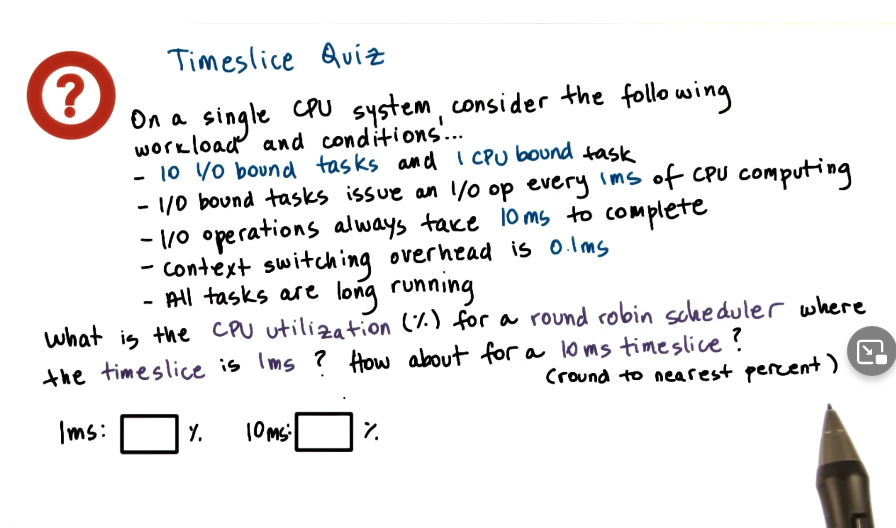 Timeslice Quiz
?
On a single CPU system, consider the following
workload and conditions...
- 10 I/O bound tasks and 1 CPU bound task
- I/O bound tasks issue an I/O op every 1ms of CPU computing
- I/O operations always take 10ms to complete
- Context switching overhead is 0.1ms
- All tasks are long running
What is the CPU utilization (%) for a round robin scheduler where
the timeslice is 1ms? How about for a 10ms timeslice?
(round to nearest percent)
1ms: % 10ms: %